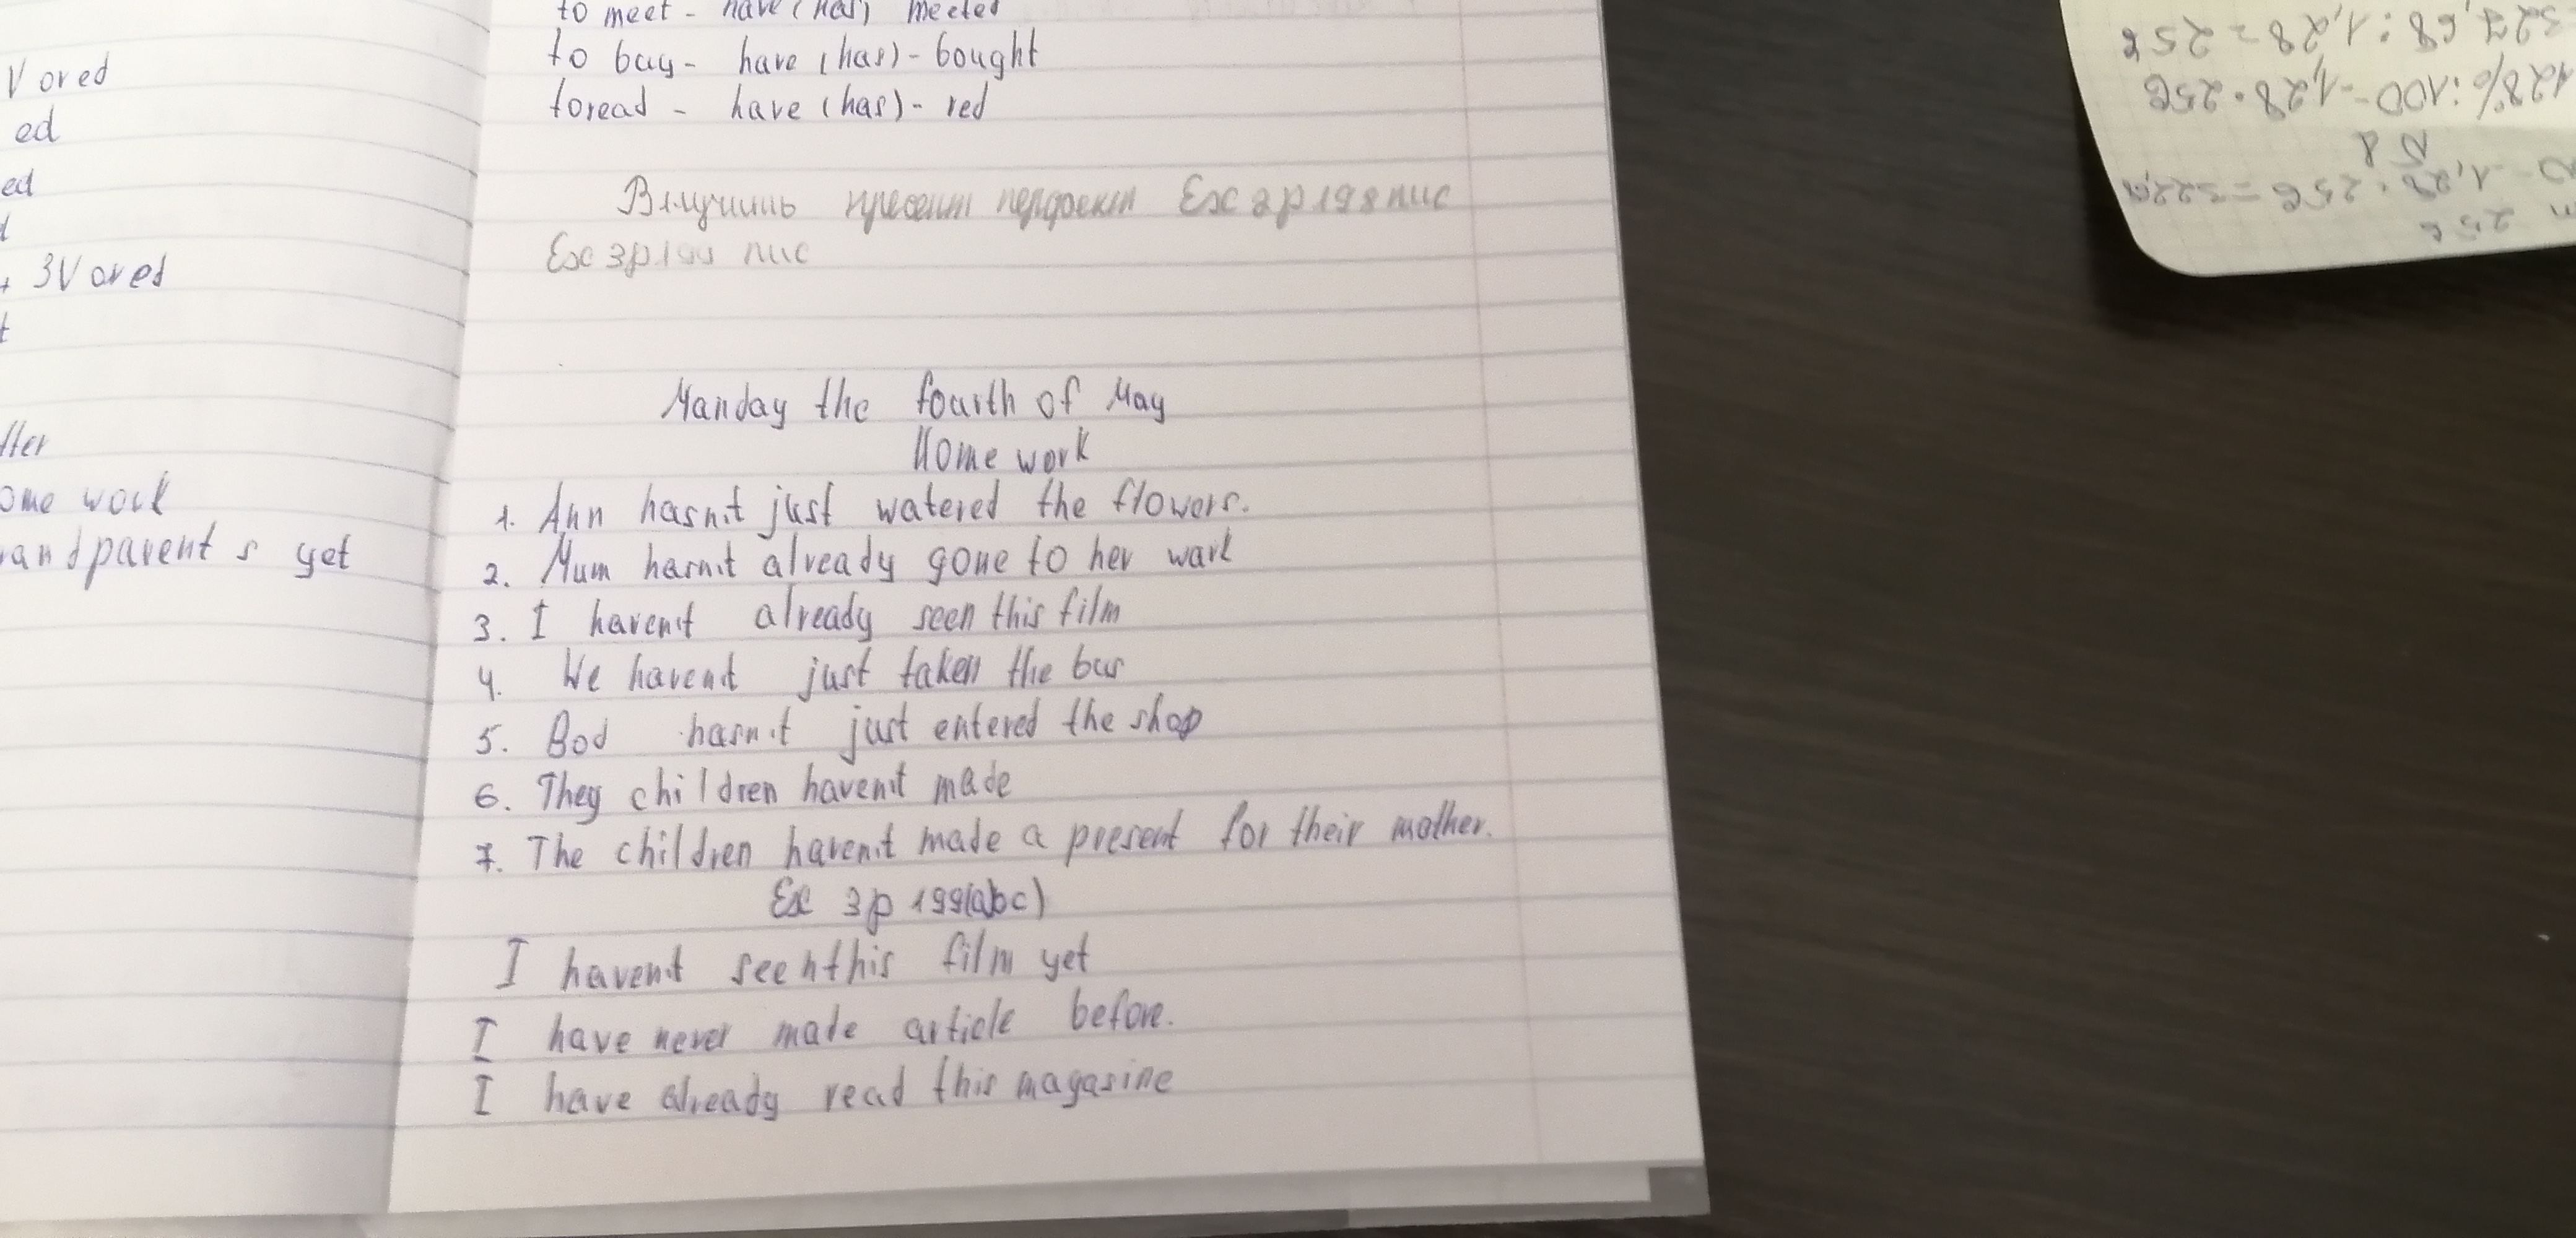 V or ed
ed
ed
+ 3V or ed
t
tter
ome work
randparent s yet
to meet - have (has) meeted
to buy - have (has) - bought
to read - have (has) - red
Ex 2 p 198 пис
Ex 3 p 199 пис
Manday the fourth of May
Home work
1. Ann hasn't just watered the flowers.
2. Mum hasn't already gone to her wark
3. I haven't already seen this film
4. We haven't just taken the bus
5. Bod hasn't just entered the shop
6. They children haven't made
7. The children haven't made a present for their mother.
Ex 3 p 199(abc)
I haven't seen this film yet
I have never made article before.
I have already read this magasine
327,68 : 1,28 = 256
128% : 100 = 1,28 · 256
1,28 · 256 = 327,68
256